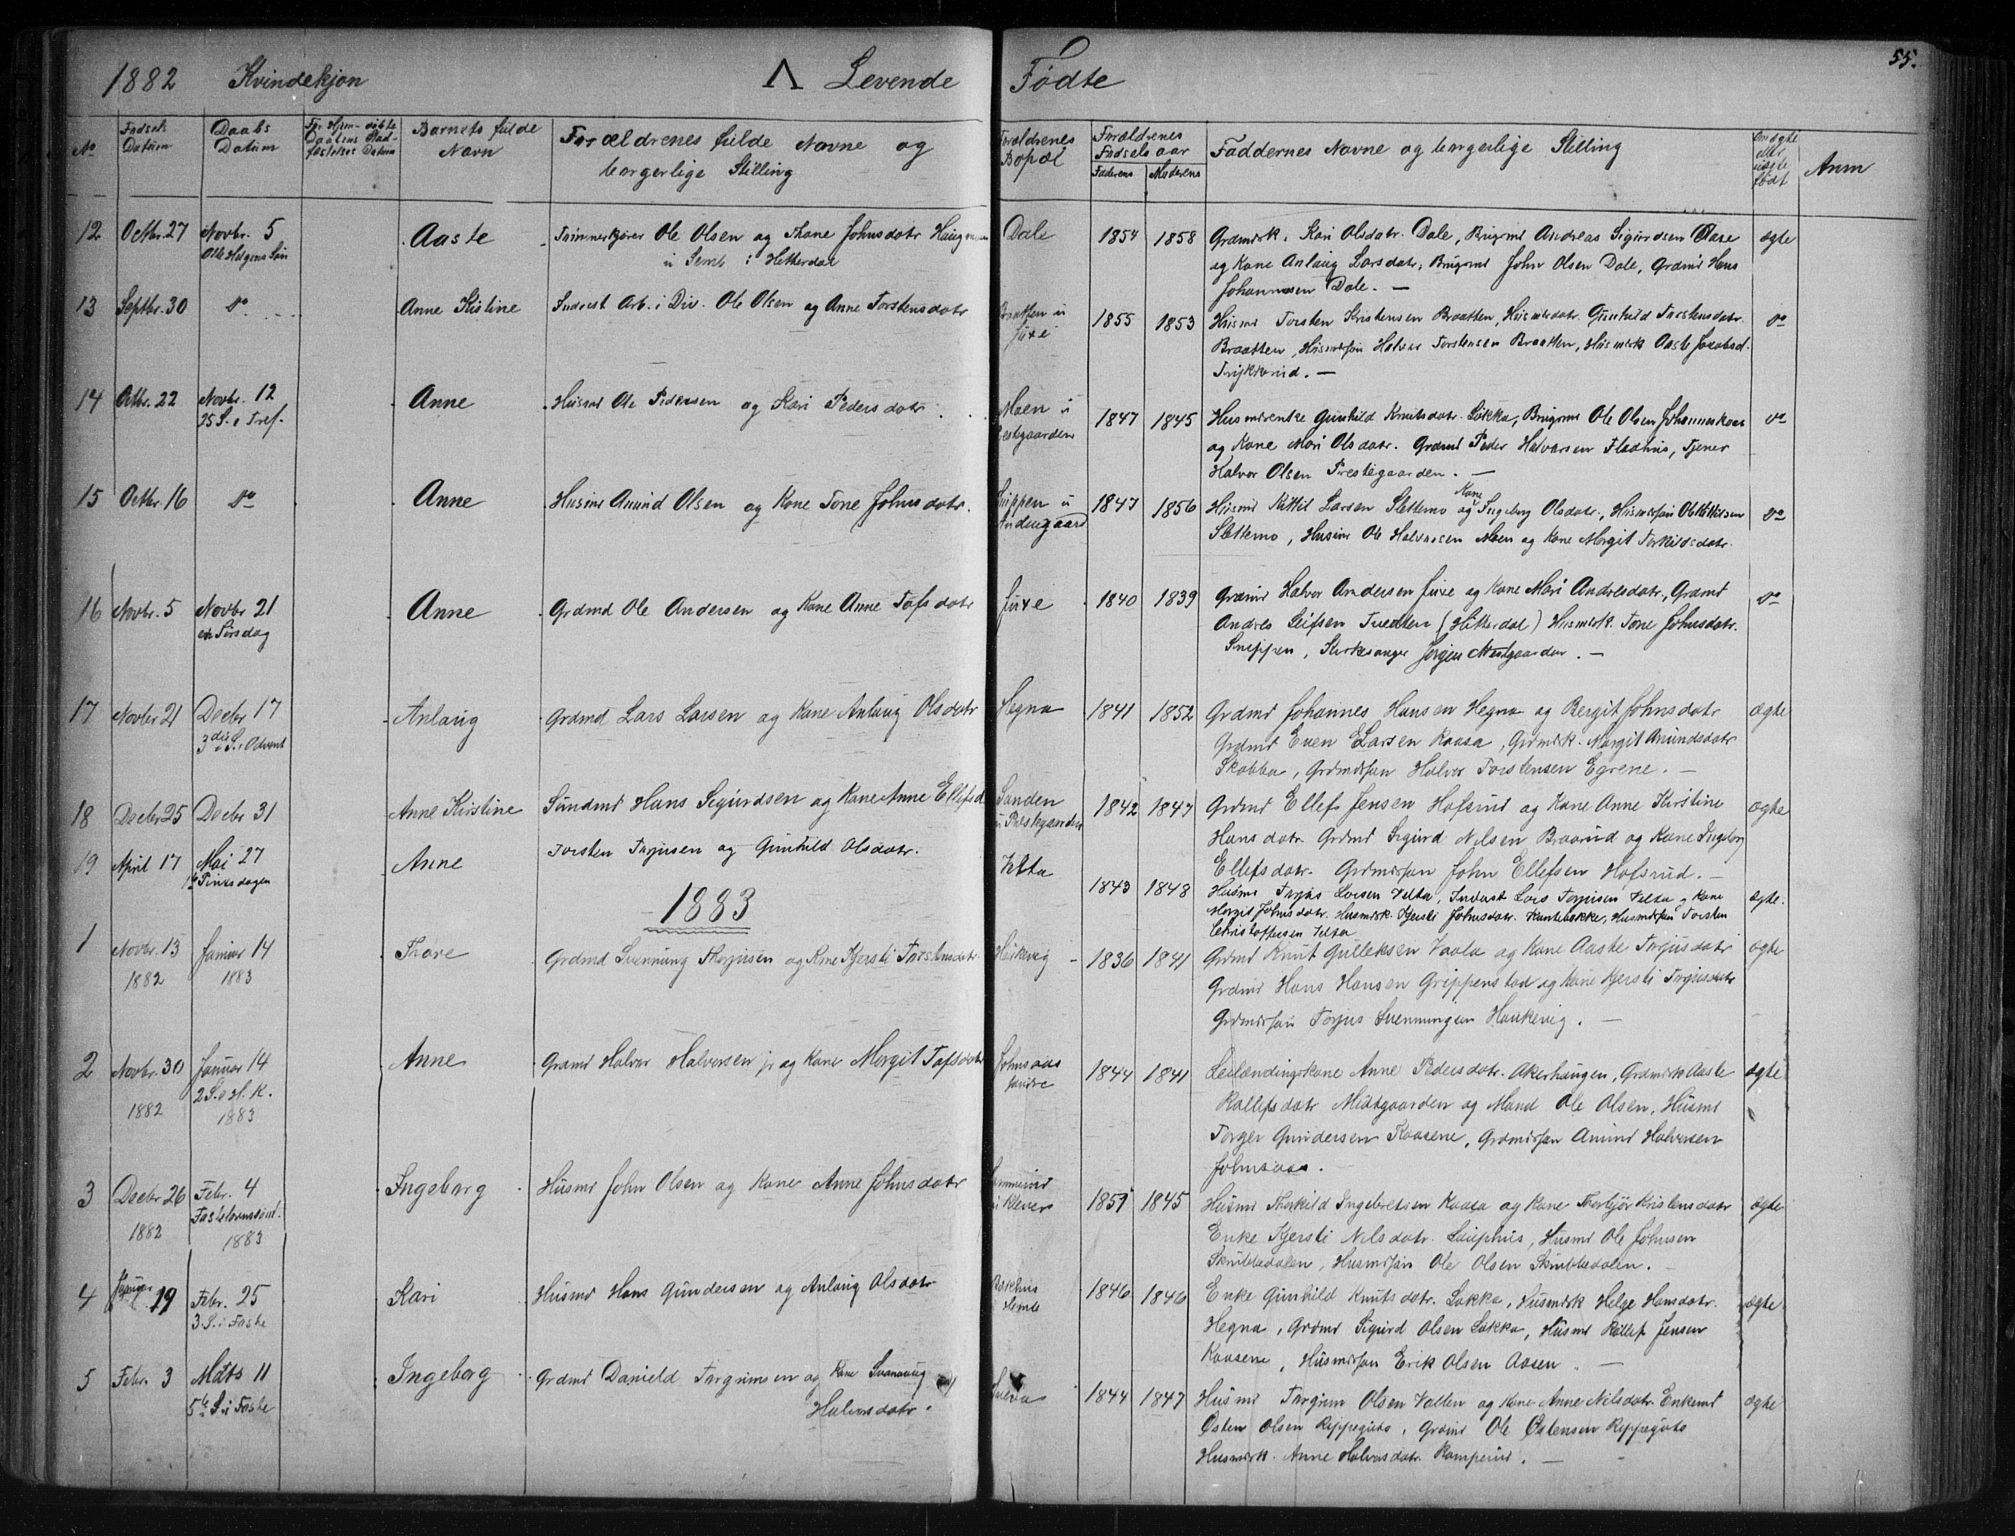 55.
1882 Kvindekjøn Λ Levende Fødte
No
Fødsels Datum
Daabs Datum
Barnets fulde Navn
Forældrenes fulde Navne og borgerlige Stilling
Forældrenes Bopæl
Forældrenes Fødsels aar
Faderens Moderens
Faddernes Navne og borgerlige Stilling
Anm
12 Octbr. 27 Novbr. 5 Aaste Tømmerkjører Ole Olsen og Kone Johnsdatr Dale 1854 1858 Grdmdsk. Kari Olsdatr. Dale, Brugsmd Andreas Sigurdsen Aase ægte
u Semb i Hitterdal
og Kone Anlaug Larsdatr, Brugsmd John Olsen Dale, Grdmd Hans
Johannesen Dale. —
13 Septbr. 30 do Anne Kistine Indrest Arb. i Div. Ole Olsen og Anne Torstensdatr Braatten u Juve 1855 1853 Husmd Torsten Kristensen Braatten, Husmdsdatr. Gunhild Torstensdatr. do
Braatten, Husmdsøn Halvor Torstensen Braatten, Husmdsk Aaste Jacobsd.
Trykkerud. —
14 Octbr. 22 Novbr. 12 Anne Husmd Ole Pedersen og Kari Pedersdatr. Moen u Prestgaarden 1847 1845 Husmdsenke Gunhild Knutsdatr. Løkka, Brugsmd Ole Olsen do
25 S. e Tref.
og Kone Mari Olsdatr. Grdmd Peder Halvorsen Flødhus, Tjener
Halvor Olsen Prestegaarden. —
15 Octbr. 16 do Anne Husmd Amund Olsen og Kone Tone Johnsdatr. Snippen u 1847 1856 Husmd Kittil Larsen Slettemo og Kone Ingeborg Olsdatr., Husmdsøn Ole Kittilsen do
Slettemo, Husmd Ole Halvorsen Moen og Kone Margit Torkildsdatr.
16 Novbr. 5 Novbr 21 Anne Grdmd Ole Andersen og Kone Anne Tofsdatr Juve 1840 1839 Grdmd Halvor Andersen Juve og Kone Mari Andresdatr., Grdmd do
en Tirsdag
Andres Leifsen Tveiten (Hitterdal) Husmdsk. Tone Johnsdatr.
Snippen, Kirkesanger Jørgen Mustgaarden. —
17 Novbr 21 Decbr 17 Anlaug Grdmd Lars Larsen og Kone Anlaug Olsdatr Hegna 1841 1852 Grdmd Johannes Hansen Hegna og Bergit Johnsdatr ægte
3die S. i Advent
Grdmd Even Larsen Kaasa, Grdmdsk. Margit Amundsdatr
Skobba, Grdmdsøn Halvor Torstensen Egrene. —
18 Decbr 25 Decbr 31 Anne Kirstine Sundmd Hans Sigurdsen og Kone Anne Ellefsd Sanden u Prestegaarden 1842 1847 Grdmd Ellef Jensen Hofsrud og Kone Anne Kirstine ægte
Hansdatr. Grdmd Sigurd Nilsen Braarud og Kone Ingeborg
Ellefsdatr. Grdmdsøn John Ellefsen Hofsrud. —
19 April 17 Mai 27 Anne Torsten Torjusen og Gunhild Olsdatr. Velta 1843 1848 Husmd Torjus Larsen Velta, Inderst Lars Torjusen Velta og Kone ægte.
1te Pinsedagen
Margit Johnsdatr. Husmdsk. Kjersti Johnsdatr. Kantebakke, Husmdsøn Torsten
Christoffersen Velta
1883
1 Novbr. 13 1882 Januar 14 1883 Thore Grdmd Svennung Thorjusen og Kone Kjersti Torstensdatr. Haukevig 1836 1841 Grdmd Knut Gulleksen Vaala og Kone Aaste Torjusdatr ægte
Grdmd Hans Hansen Grippenstad og Kone Kjersti Torjusdatr
Grdmdsøn Torjus Svennungsen Haukevig. —
2 Novbr. 30 1882 Januar 14 2 S. e H. K. 1883 Anne Grdmd Halvor Halvorsen jr og Kone Margit Tofsdatr Johnsaas 1844 1841 Leilændingskone Anne Pedersdatr. Akerhaugen, Grdmdsk Aaste ægte
Rollefsdatr Midtgaarden og Mand Ole Olsen, Husmd
Torger Gundersen Kaasene, Grdmdsøn Amund Halvorsen
Johnsaas. —
3 Decbr 26 1882 Febr. 4 Fastelavnssønd. 1883 Ingeborg Husmd John Olsen og Kone Anne Johnsdatr u Klevers 1851 1845 Husmd Thorkild Ingebretsen Kaasa og Kone Thorbjør Kristensdatr ægte
Enke Kjersti Nilsdatr. Lauphus, Husmd Ole Johnsen
Skribbedalen, Husmdsøn Ole Olsen Skribbedalen. —
4 Januar 19 Febr. 25 3. S. i Faste Kari Husmd Hans Gundersen og Anlaug Olsdatr Bakhus 1846 1846 Enke Gunhild Knutsdatr. Løkka, Husmdsk Helge Hansdatr. ægte
Hegna, Grdmd Sigurd Olsen Løkka, Husmd Rollef Jensen
Kaasene, Husmdsøn Erik Olsen Aasen. —
5 Febr. 3 Mats 11 5te S. i Faste Ingeborg Grdmd Danield Torgrimsen og Kone Svanaug Halvorsdatr. 1844 1847 Husmd Torgrim Olsen Vallen og Kone Anne Nilsdatr. Enkemd ægte
Østen Olsen Rippeguto, Grdmd Ole Østensen Rippeguto
Husmdsk. Anne Halvorsdatr. Romperud. —